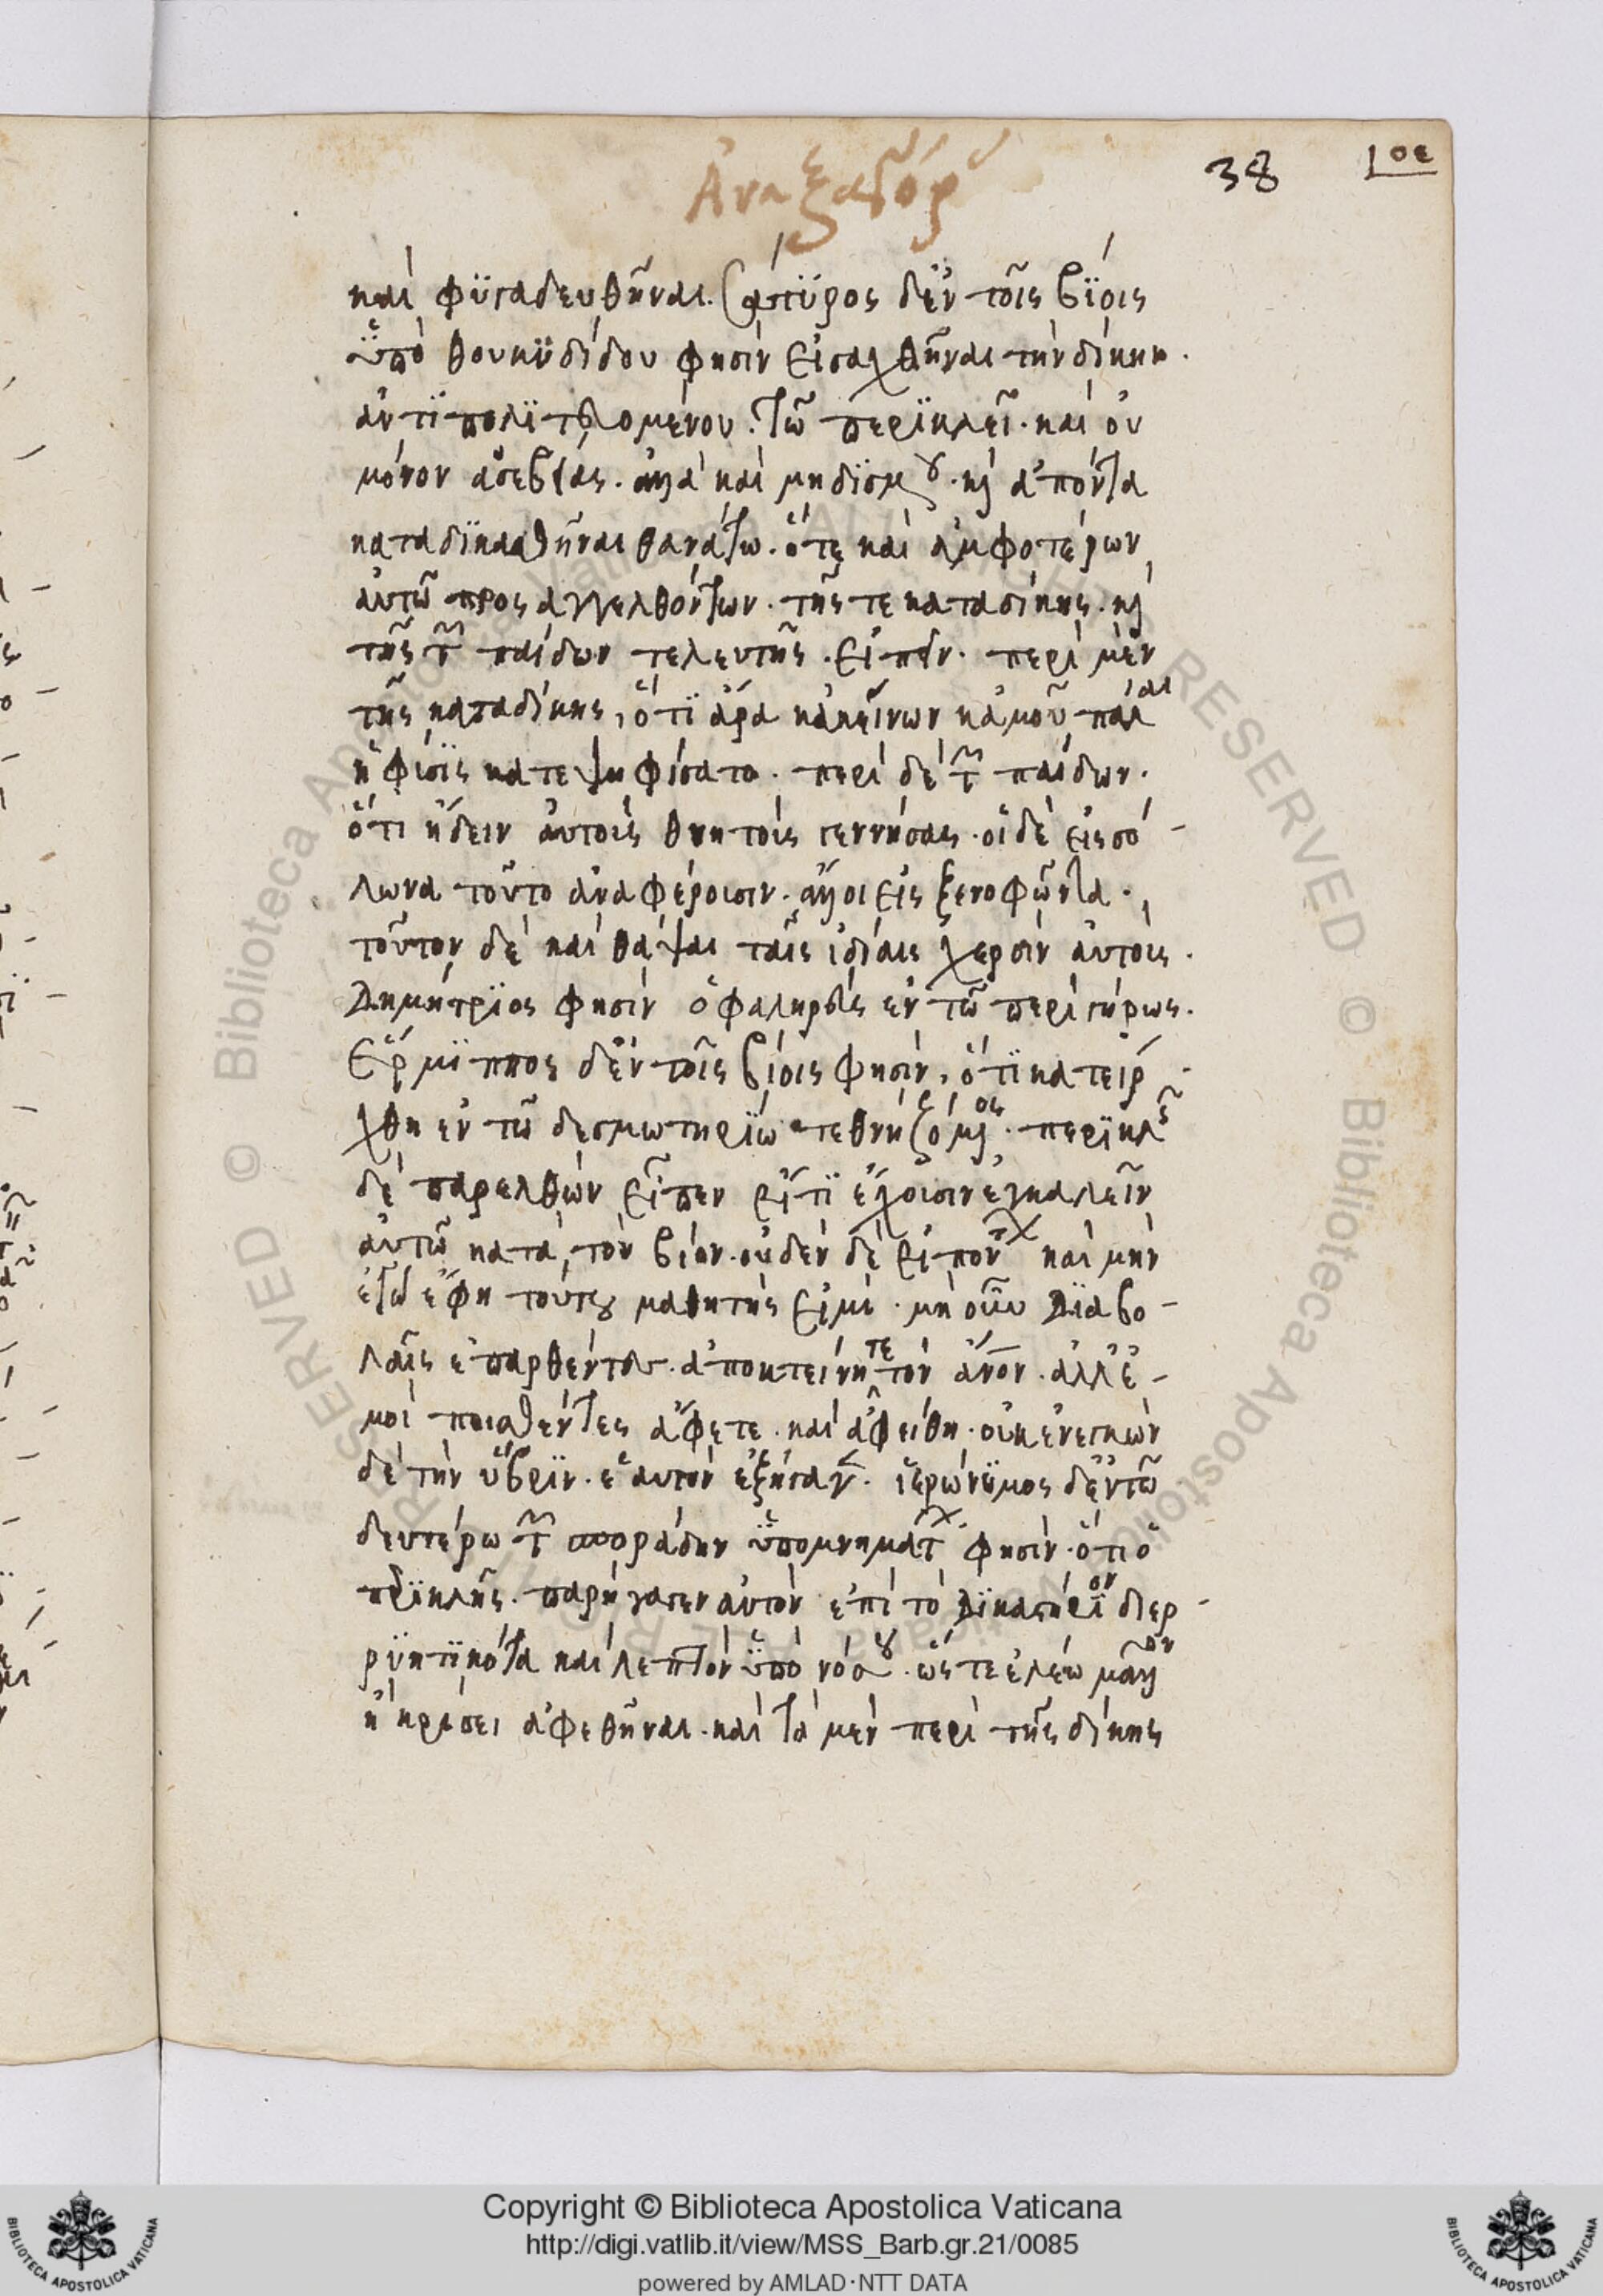 Ἀναξαγόρου
38
οε
καὶ φϋγαδευθῆναι. Σάτϋρος δ' ἐν τοῖς βΐοις
ὑπὸ θουκϋδίδου φησὶν εἰσαχθῆναι τὴν δίκην.
ἀντϊπολϊτευομένου. τῶ περϊκλεῖ. καὶ οὐ
μόνον ἀσεβείας. ἀλλὰ καὶ μηδϊσμοῦ. καὶ ἀπόντα
καταδϊκασθῆναι θανάτω. ὅτε καὶ ἀμφοτέρων
αὐτῶ προσαγγελθόντων. τῆς τε καταδίκης. καὶ
τῆς τῶν παίδων τελευτῆς. εἰπεῖν. περὶ μὲν
τῆς καταδίκης, ὅτϊ ἄρα κἀκείνων κἀμοῦ πάλαι
ἡ φίσϊς κατεψηφίσατο. περὶ δὲ τῶν παίδων.
ὅτι ἤδειν αὐτοὶς θνητοὶς γεννήσας. οἱ δὲ εἰς σό-
λωνα τοῦτο ἀναφέροισιν. ἄλλοι εἰς ξενοφῶντα.
τοῦτον δὲ καὶ θάψαι ταῖς ἰδίαις χερσὶν αὐτοὶς.
Δημήτρϊος φησὶν ὁ φαληρεὺς ἐν τῶ περὶ γήρως.
Ἕρμϊππος δ' ἐν τοῖς βίοις φησὶν, ὅτϊ κατείρ-
χθη ἐν τῶ δεσμωτηρΐω τεθνηζόμενος. περϊκλῆς
δὲ παρελθὼν εἶπεν εἴ τϊ ἔχοισιν ἐγκαλεῖν
αὐτῶ κατὰ τὸν βίον. οὐδὲν δὲ εἰπόντων καὶ μὴν
ἐγὼ ἔφη τούτου μαθητής εἰμι. μὴ οὖν Διαβο-
λαῖς ἐπαρθέντες. ἀποκτείνητε τὸν ἄνον. ἀλλ' ἐ-
μοὶ ποισθέντες ἄφετε. καὶ ἀφείθη. οὐκ ἐνεγκὼν
δὲ τὴν ὕβρϊν. ἑαυτὸν ἐξήγαγεν. ἱερώνϋμος δ' ἐν τῶ
δευτέρω τῶν σποράδην ὑπομνημάτων φησὶν. ὅτι ὁ
περϊκλῆς. παρήγαγεν αὐτὸν ἐπὶ τὸ Δϊκαστήρϊον διερ-
ρϋηκϊκότα καὶ λεπτὸν ὑπὸ νόσου. ὥστε ἐλέω μᾶλλον
ἢ κρίσει ἀφεθῆναι. καὶ τὰ μὲν περὶ τῆς δίκης
Copyright © Biblioteca Apostolica Vaticana
http://digi.vatlib.it/view/MSS_Barb.gr.21/0085
powered by AMLAD·NTT DATA
BIBLIOTECA APOSTOLICA VATICANA
BIBLIOTECA APOSTOLICA VATICANA